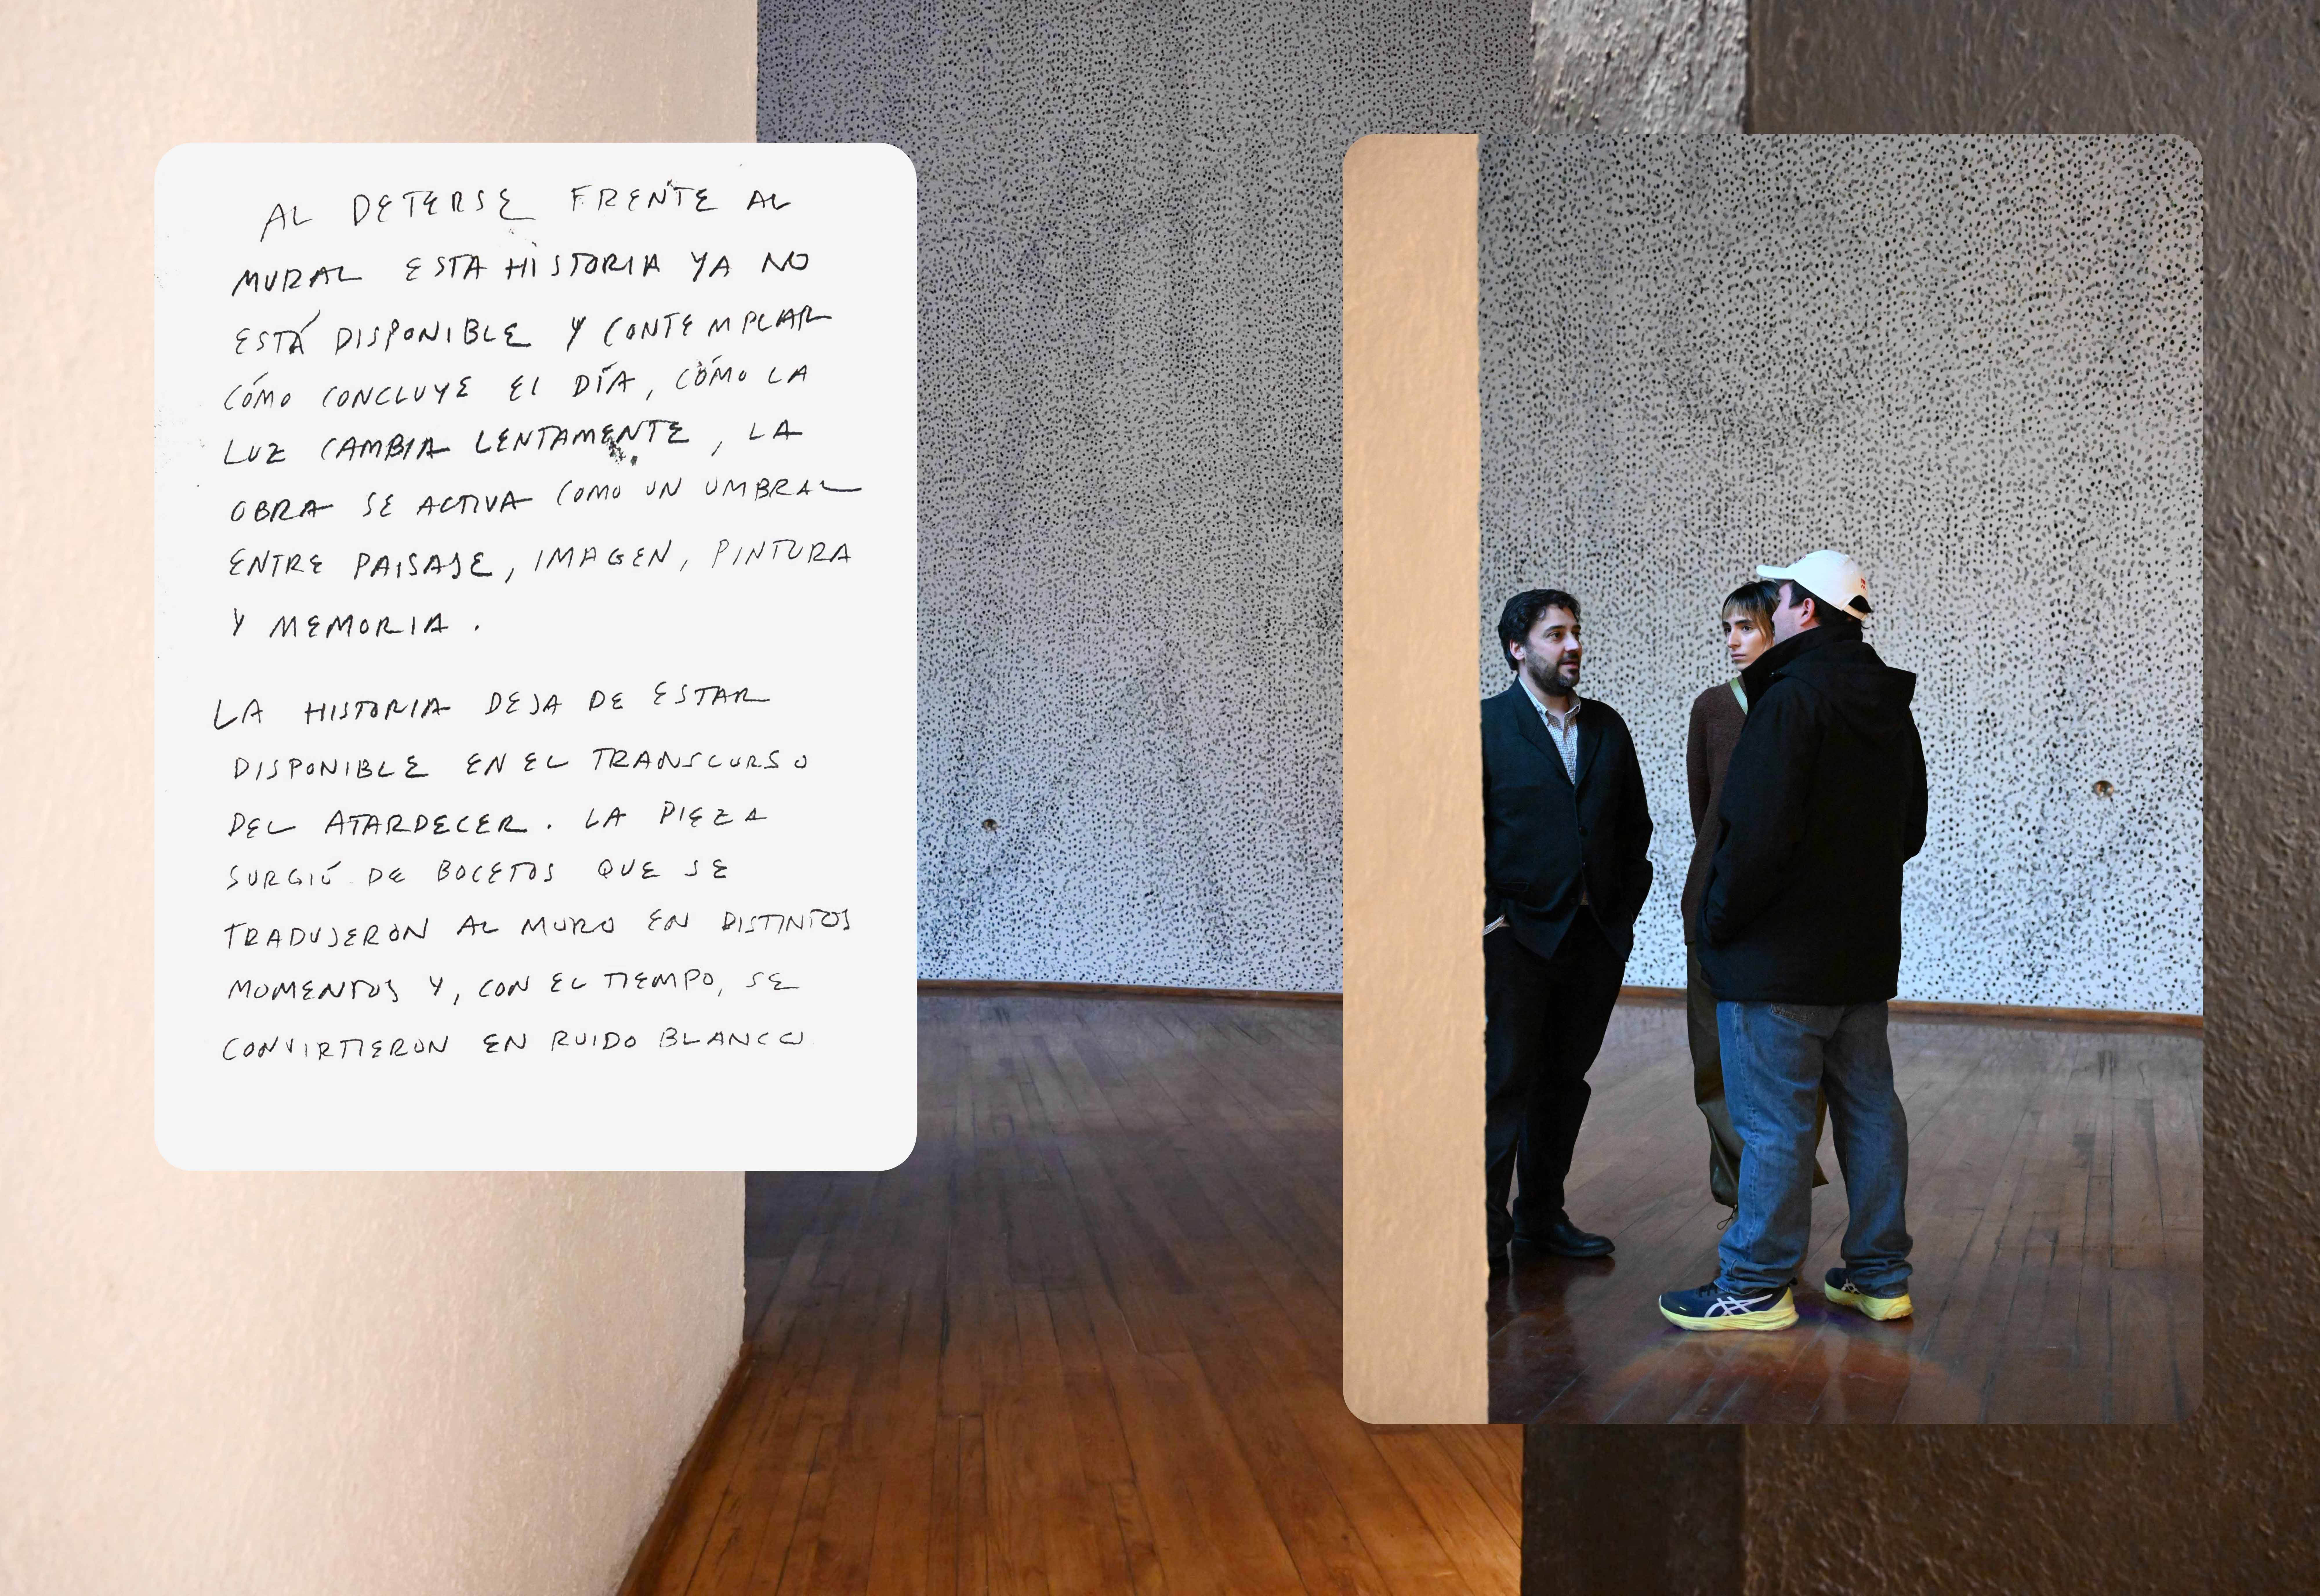 AL DETERSE FRENTE AL
MURAL ESTA HISTORIA YA NO
ESTÁ DISPONIBLE Y CONTEMPLAR
CÓMO CONCLUYE EL DÍA, CÓMO LA
LUZ CAMBIA LENTAMENTE, LA
OBRA SE ACTIVA COMO UN UMBRAL
ENTRE PAISAJE, IMAGEN, PINTURA
Y MEMORIA.
LA HISTORIA DEJA DE ESTAR
DISPONIBLE EN EL TRANSCURSO
DEL ATARDECER. LA PIEZA
SURGIÓ DE BOCETOS QUE SE
TRADUJERON AL MURO EN DISTINTOS
MOMENTOS Y, CON EL TIEMPO, SE
CONVIRTIERON EN RUIDO BLANCO.